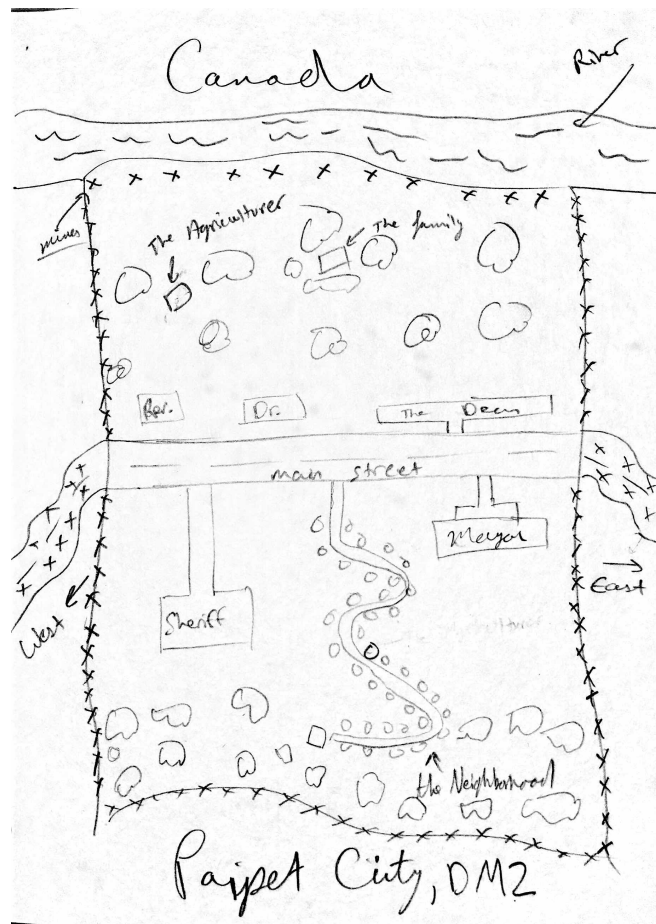 Canada
River
mines
The Agriculturer
The family
Rev.
Dr.
The Dean
main street
Mayor
Sheriff
West
East
the Neighborhood
City, DMZ